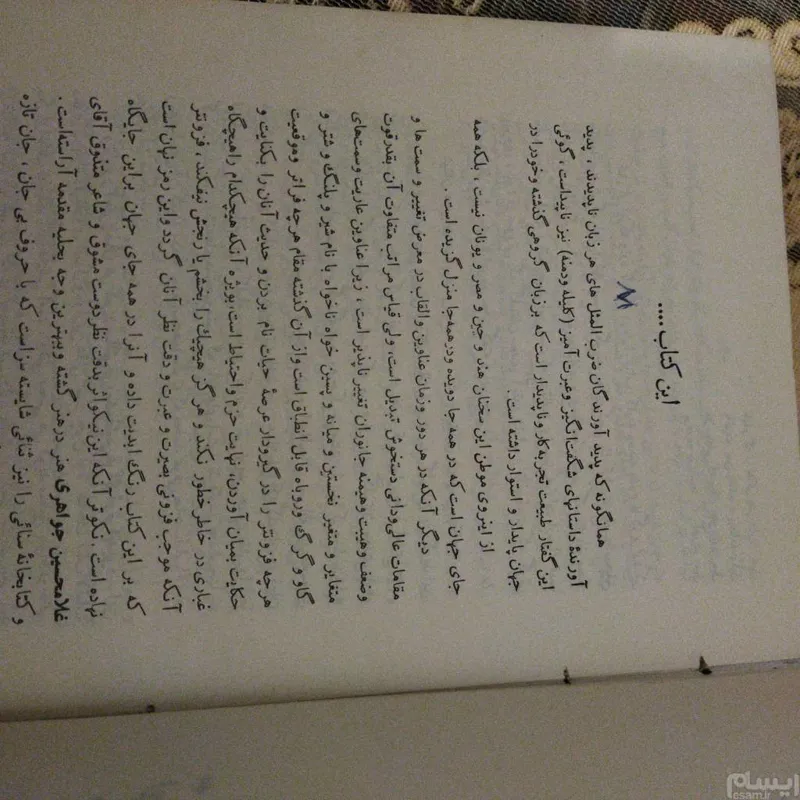 این کتاب ....
همانگونه که پدید آورندگان ضرب المثل های هر زبان ناپدیدند ، پدید
آورندهٔ داستانهای شگفت‌انگیز وعبرت آمیز (کلیله ودمنه) نیز ناپیداست ، گوئی
این گفتار طبیعت تجربه کار و ناپدیدار است که بر زبان گروهی گذشته وخود را در
جهان پایدار و استوار داشته است .
از اینروی موطن این سخنان هند و چین و مصر و یونان نیست ، بلکه همه
جای جهان است که در همه جا دویده ودرهمه‌جا منزل گزیده است .
دیگر آنکه در هر دور وزمان عناوین والقاب در معرض تغییر و سمت ها و
مقامات عالی‌ودانی دستخوش تبدیل است، ولی قیاس مراتب متفاوت آن بقدرقوت
وضعف وهیبت وهیمنه جانوران تغییر ناپذیر است ، زیرا عناوین عاریت وسمت‌های
متغایر و متغیر نخستین و میانه و پسین خواه ناخواه با نام شیر و پلنگ و شتر و
گاو و گرگ وروباه قابل انطباق است واز آن گذشته مقام هرچه فراتر وموقعیت
هرچه فزونتر را در گیرودار عرصهٔ حیات نام بردن و حدیث آنان را بکنایت و
حکایت بمیان آوردن، نهایت حزم واحتیاط است بویژه آنکه هیچکدام راهیچگاه
غباری در خاطر خطور نکند و هر گز هیچیك را بخشم یا رنجش نیفکند ، فزونتر
آنکه موجب فزونی بصیرت و عبرت و دقت نظر آنان گردد واین رمز نهان است
که بر این کتاب رنگ ابدیت داده و آنرا در همه جای جهان براین جایگاه
نهاده است . نکوتر آنکه این نیکو اثر بدقت نظر دوست مشوق و شاعر متذوق آقای
غلامحسین جواهری هنر در هنر گشته و ببهترین وجه بحلیه مقدمه آراسته‌است .
و کتابخانهٔ سنائی را نیز ثنائی شایسته سزاست که با حروف بی جان ، جان تازه
ایسام
esam.ir